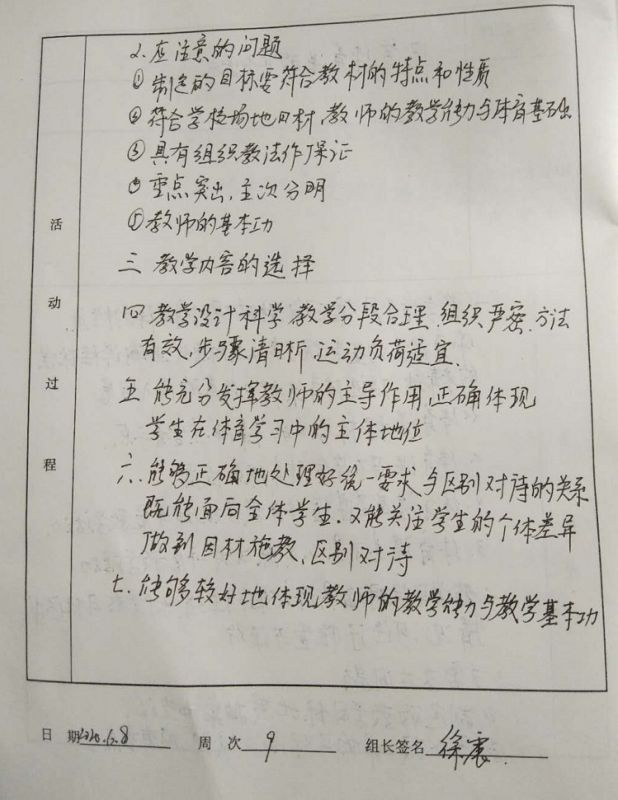 2.应注意的问题
①制定的目标要符合教材的特点和性质
②符合学校场地口材、教师的教学能力与体育基础
③具有组织教法作保证
④重点突出,主次分明
⑤教师的基本功
三 教学内容的选择
四 教学设计科学 教学分段合理 组织严密.方法
有效,步骤清晰,运动负荷适宜.
五 能充分发挥教师的主导作用,正确体现
学生在体育学习中的主体地位
六.能够正确地处理好统一要求与区别对诗的关系
既能面向全体学生.又能关注学生的个体差异
做到 因材施教、区别对诗
七.能够较好地体现教师的教学能力与教学基本功
活动过程
日 期 2020.6.8 周 次 9 组长签名 徐震